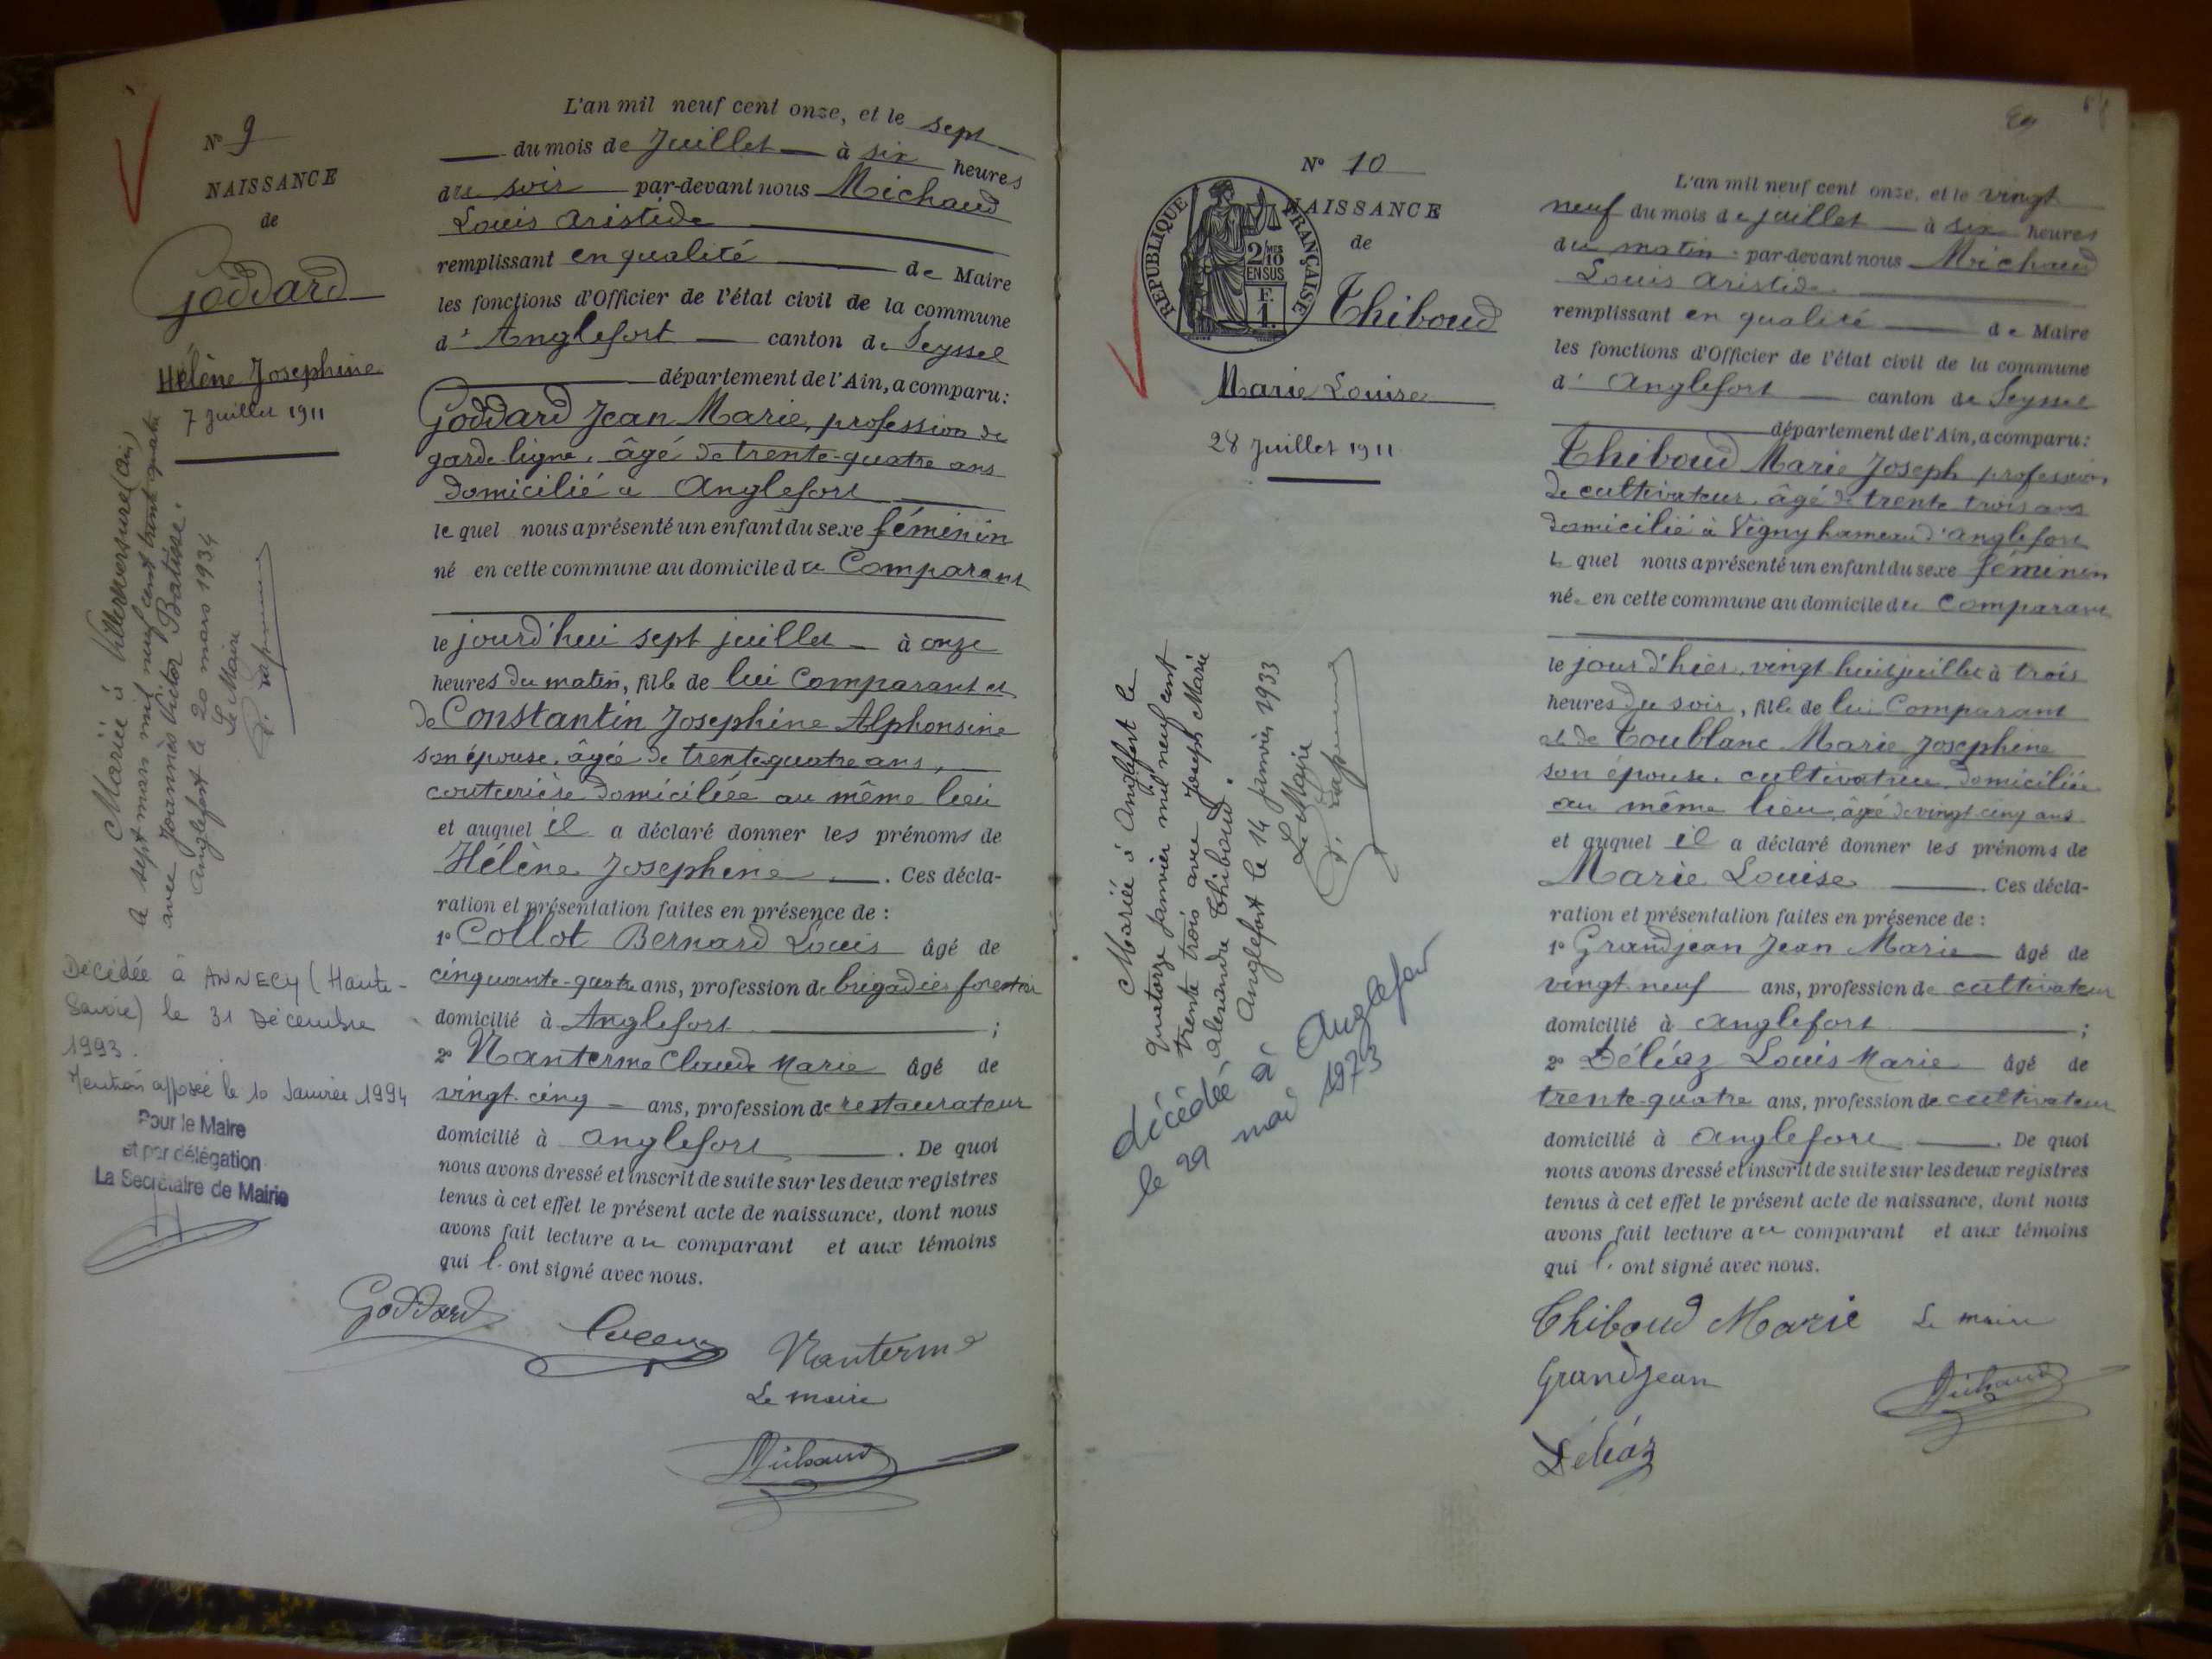 N° 9
NAISSANCE
de
Goddard
Hélène Josephine
7 Juillet 1911
Mariée à Villereversure (Ain)
le sept mars mil neuf cent trente quatre
avec Joannès Victor Batisse.
Anglefort le 20 mars 1934
Le Maire
Décédée à ANNECY (Haute-
Savoie) le 31 Décembre
1993.
Mention apposée le 10 Janvier 1994
Pour le Maire
et par délégation
La Secrétaire de Mairie
L'an mil neuf cent onze, et le sept
du mois de Juillet à six heures
du soir par-devant nous Michaud
Louis Aristide
remplissant en qualité de Maire
les fonctions d'Officier de l'état civil de la commune
d' Anglefort canton de Seyssel
département de l'Ain, a comparu:
Goddard Jean Marie, profession de
garde-ligne, âgé de trente-quatre ans
domicilié à Anglefort
le quel nous a présenté un enfant du sexe féminin
né en cette commune au domicile du Comparant
le jourd'hui sept juillet à onze
heures du matin, fille de lui Comparant et
de Constantin Josephine Alphonsine
son épouse, âgée de trente-quatre ans,
couturière domiciliée au même lieu
et auquel il a déclaré donner les prénoms de
Hélène Josephine. Ces décla-
ration et présentation faites en présence de :
1° Collot Bernard Louis âgé de
cinquante-quatre ans, profession de brigadier forestier
domicilié à Anglefort ;
2° Nanterme Claude Marie âgé de
vingt-cinq ans, profession de restaurateur
domicilié à Anglefort. De quoi
nous avons dressé et inscrit de suite sur les deux registres
tenus à cet effet le présent acte de naissance, dont nous
avons fait lecture au comparant et aux témoins
qui l' ont signé avec nous.
Goddard
Nanterme
Le maire
Michaud
29
N° 10
NAISSANCE
de
REPUBLIQUE FRANÇAISE
2/10 MES
EN SUS
F.
1.
Thiboud
Marie Louise
28 Juillet 1911
Mariée à Anglefort le
quatorze janvier mil neuf cent
trente trois avec Joseph Marie
Alexandre Thiboud.
Anglefort le 14 janvier 1933
Le Maire
décédée à Anglefort
le 29 mai 1973
L'an mil neuf cent onze, et le vingt
neuf du mois de juillet à six heures
du matin par-devant nous Michaud
Louis Aristide
remplissant en qualité de Maire
les fonctions d'Officier de l'état civil de la commune
d' Anglefort canton de Seyssel
département de l'Ain, a comparu:
Thiboud Marie Joseph profession
de cultivateur, âgé de trente trois ans
domicilié à Vigny hameau d'Anglefort
le quel nous a présenté un enfant du sexe féminin
née en cette commune au domicile du Comparant
le jour d'hier, vingt huit juillet à trois
heures du soir, fille de lui Comparant
et de Toublanc Marie Josephine
son épouse, cultivatrice, domiciliée
au même lieu, âgée de vingt-cinq ans
et auquel il a déclaré donner les prénoms de
Marie Louise. Ces décla-
ration et présentation faites en présence de :
1° Grandjean Jean Marie âgé de
vingt neuf ans, profession de cultivateur
domicilié à Anglefort ;
2° Déléaz Louis Marie âgé de
trente-quatre ans, profession de cultivateur
domicilié à Anglefort. De quoi
nous avons dressé et inscrit de suite sur les deux registres
tenus à cet effet le présent acte de naissance, dont nous
avons fait lecture au comparant et aux témoins
qui l' ont signé avec nous.
Thiboud Marie Le maire
Grandjean
Michaud
Déléaz